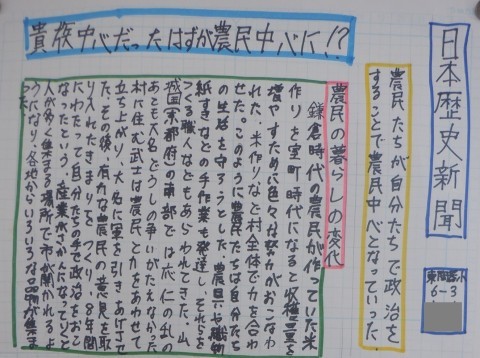 日本歴史新聞
6-3
貴族中心だったはずが農民中心に!?
農民たちが自分たちで政治を
することで農民中心となっていった
農民の暮らしの変化
鎌倉時代の農民が作っていた米
作りを室町時代になると収穫量を
増やすために色々な努力がおこなわ
れた。米作りなど村全体で力を合わ
せた。このように農民たちは自分たち
の生活を守ろうとした。農具や織物
紙すきなどの手作業も発達し、それらを
つくる職人などもあらわれてきた。山
城国(京都府)の南部では応仁の乱の
あとも大名どうしの争いがたえなかった
村に住む武士は農民と力をあわせて
立ち上がり、大名に軍を引きあげさせ
た。その後、有力な農民の意見を取
り入れたきまりをつくり、8年間
にわたって自分たちの手で政治をおこ
なったという。産業がさかんになっていくと
人が多く集まる場所で市が開かれるよ
うになり、各地からいろいろな品物が集ま
った。